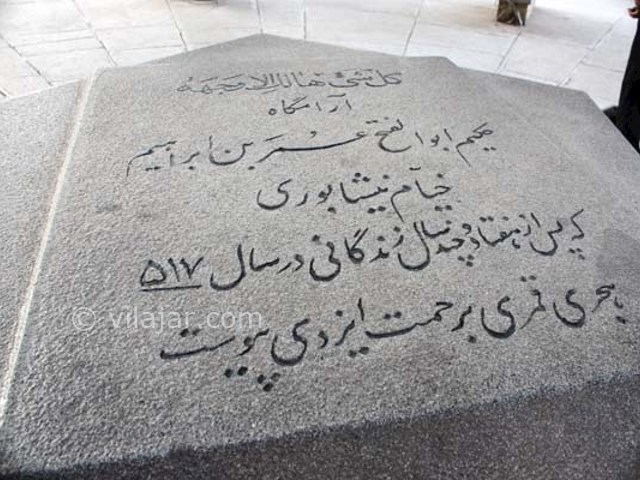 کل شیء هالک الا وجهه
آرامگاه
حکیم ابوالفتح عمر بن ابراهیم
خیام نیشابوری
که پس از هفتاد و چند سال زندگانی در سال ۵۱۷
هجری قمری برحمت ایزدی پیوست
© vilajar.com